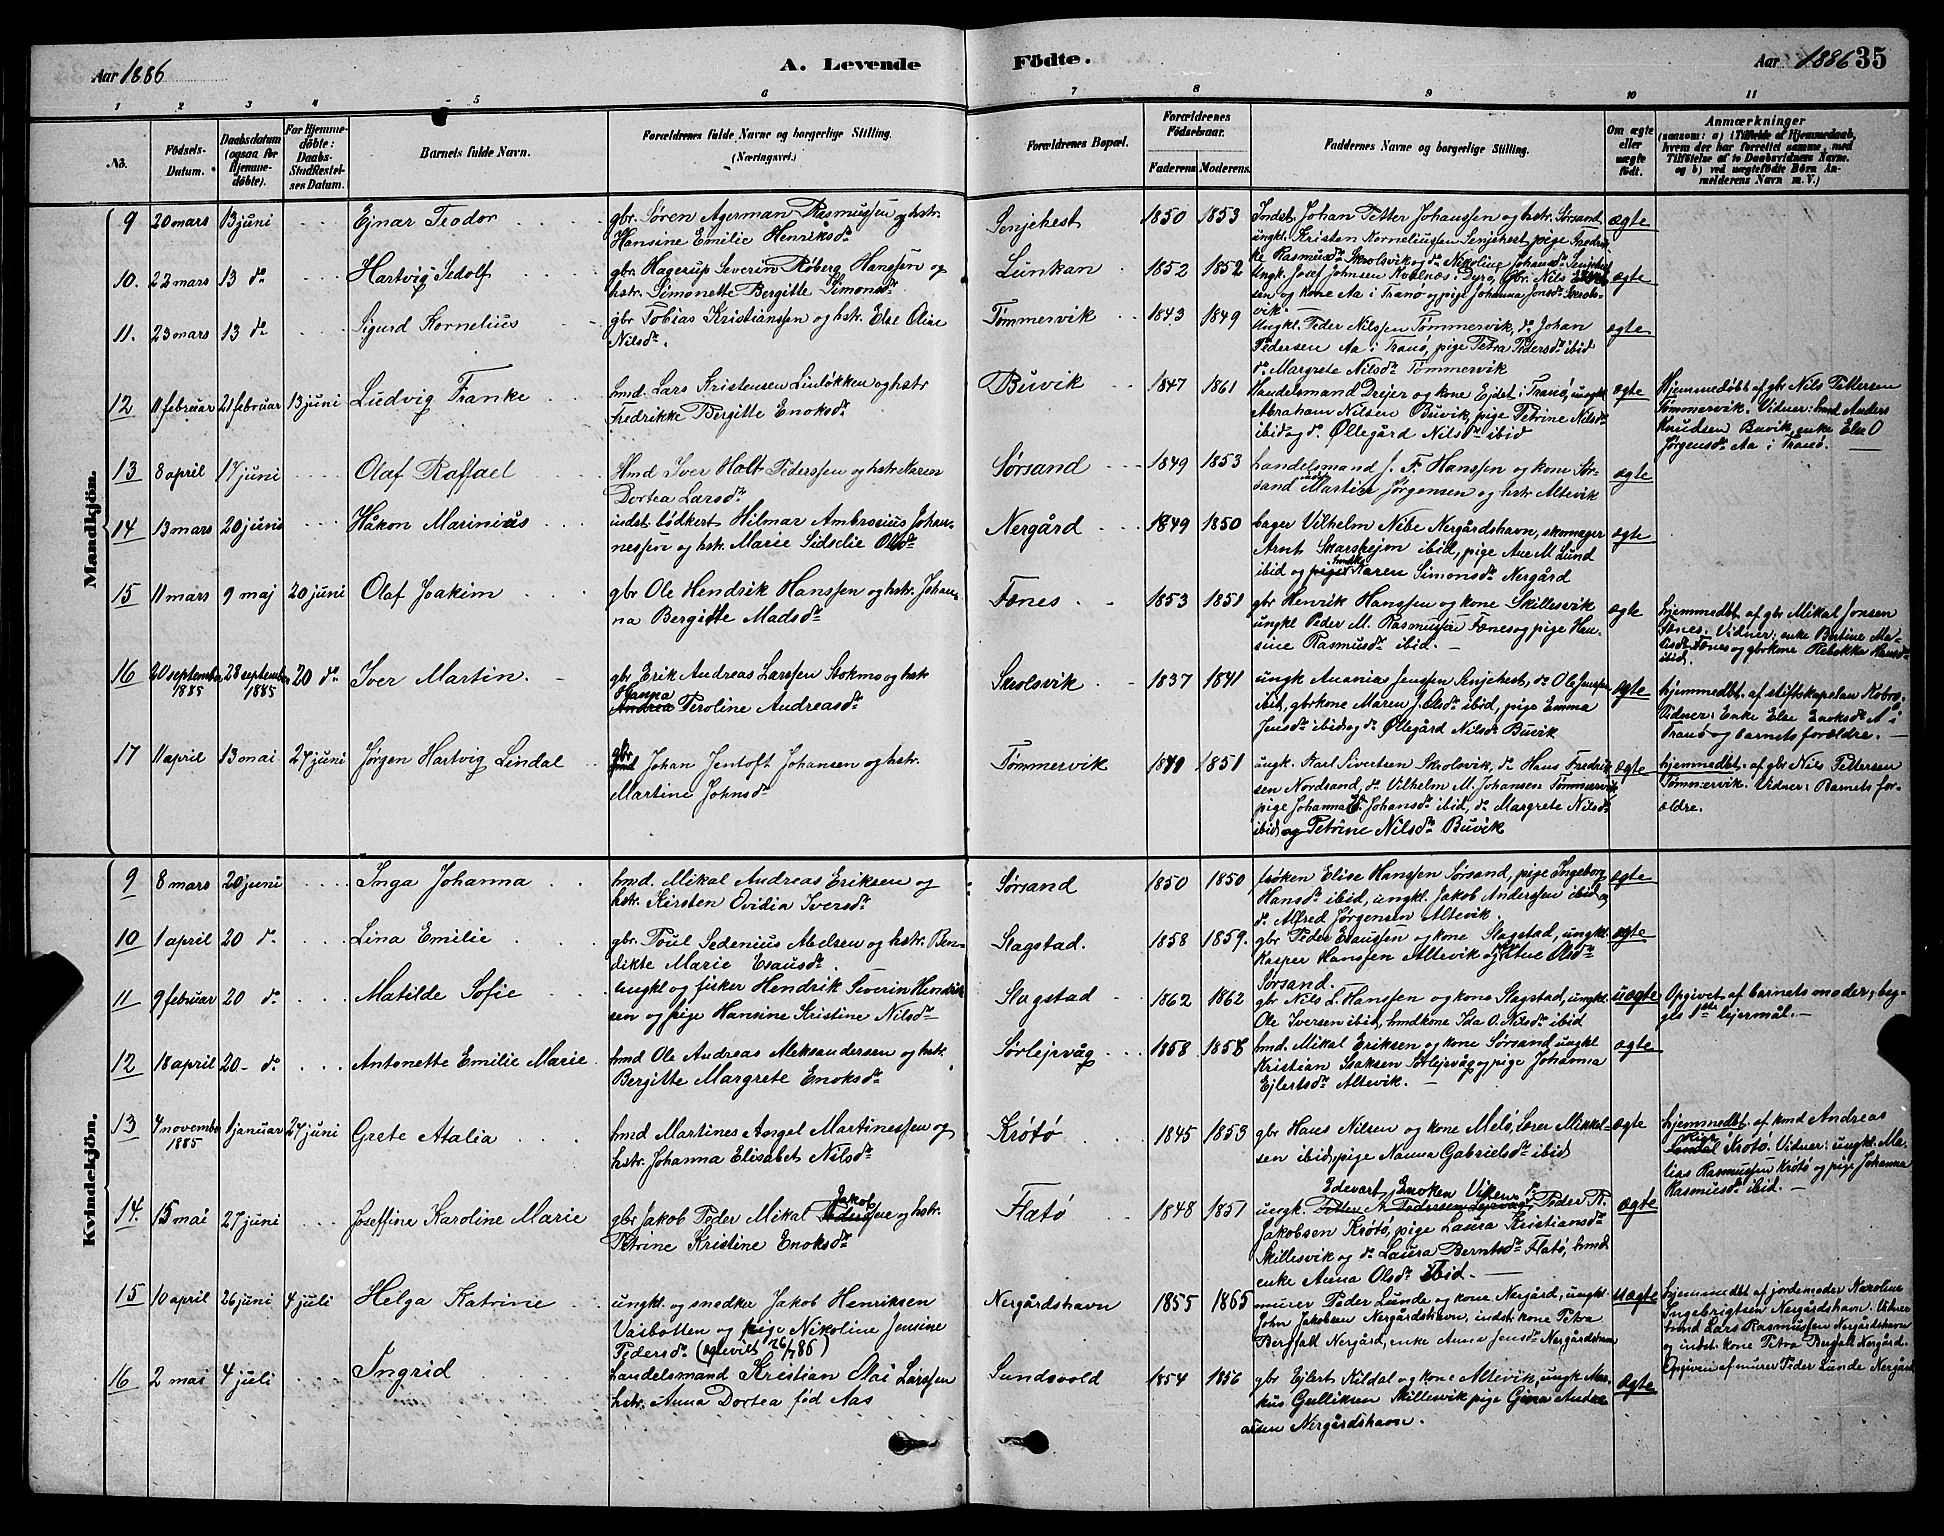 Aar 1886
A. Levende Födte.
Aar 1886 35
1 2 3 4 5 6 7 8 9 10 11
No.
Födsels-Datum.
Daabsdatum (ogsaa for Hjemme-döbte).
For Hjemme-döbte: Daabs-Stadfæstel-ses Datum.
Barnets fulde Navn.
Forældrenes fulde Navne og borgerlige Stilling. (Næringsvei.)
Forældrenes Bopæl.
Forældrenes Födselsaar.
Faderens Moderens
Faddernes Navne og borgerlige Stilling.
Om ægte eller uægte födt.
Anmærkninger
(saasom: a) i Tilfælde af Hjemmedaab, hvem der har forrettet samme, med Tilföielse af to Daabsvidners Navne. og b) ved uægtefödte Börn Anmelderens Navn m. V.)
Mandkjön.
9 20 mars 13 juni Ejnar Teodor
gbr. Søren Agerman Rasmussen og hstr.
Hansine Emilie Henriksdr
Senjehest 1850 1853
Indst. Johan Petter Johanssen og hstr. Sørsand
ungkl. Kristen Korneliussen Senjehest, pige Fredrik-
ke Rasmusdr Skrolsvik og dr Nikoline Johansdr Senjehest
ægte
10. 22 mars 13 dr Hartvig Sedolf
gbr. Hagerup Severin Røberg Hanssen og
hstr. Simonette Bergitte Simonsdr
Lunkan 1852 1852
Ungk. Josef Johnsen Kvalnæs i Dyrø, Gbr. Nils
sen og kone Aa i Tranø og pige Johanna Jonsdr Skrols-
vik
ægte
11. 23 mars 13 dr Sigurd Kornelius
gbr Tobias Kristianssen og hstr. Else Oline
Nilsdr.
Tømmervik 1843 1849
Ungkl. Peder Nilssen Tømmervik, dr. Johan
Pedersen Aa i Tranø, pige Petra Pedersdr ibid
dr. Margrete Nilsdr Tømmervik
ægte
12 11 februar 21 februar 13 juni Ludvig Franke
hmd. Lars Kristensen Linløkken og hstr
Fredrikke Bergitte Enoksdr
Buvik 1847 1861
Handelsmand Drejer og kone Ejdet i Tranø, ungkl
Abraham Nilsen Buvik, pige Petrine Nilsdr
ibid og dr. Øllegård Nilsdr ibid
ægte
Hjemmedøbt af gbr Nils Pettersen
Tømmervik. Vidner: hmd Anders
Knudsen Buvik, enke Else O
Jørgensdr Aa i Tranø.
13 8 april 17 juni Olaf Raffael
Hmd Iver Holt Pederssen og hstr. Maren
Dortea Larsdr
Sørsand 1849 1853
handelsmand J. F. Hanssen og kone Sør-
sand, Martin Jørgensen og hstr Altevik
ægte
14 13 mars 20 juni Håkon Marinius
indst. bødkert Hilmar Ambrosius Johan-
nessen og hstr. Marie Sidselie Olsdr
Nergård 1849 1850
bager Vilhelm Nibe Nergårdshavn, skomager
Arnt Skarshejon ibid, pige Ane M. Lund
ibid og pige Karen Simonsdr Nergård
ægte
15 11 mars 9 maj 20 juni Olaf Joakim
gbr Ole Hendrik Hanssen og hstr. Johan-
na Bergitte Madsdr
Fænes 1853 1851
gbr Henrik Hanssen og kone Skillesvik
ungkl Peder M. Rasmussen Fænes og pige Han-
sine Rasmusdr ibid.
ægte
hjemmedbt. af gbr Mikal Jonsen
Fænes. Vidner: enke Batine Ma-
disdr Fænes og gbrkone Rebekka Hansdr
ibid.
16 20 september 1885 28 september 1885 20 dr Iver Martin.
gbr Erik Andreas Larssen Stokmo og hstr
Hanna
Andrea Peroline Andreasdr
Skrolsvik 1837 1841
ungk Anania Jenssen Senjehest, dr Ole Jenssen
ibid, gbrkone Maren J. Olsdr ibid, pige Emma
Jensdr ibid og dr. Øllegård Nilsdr Buvik
ægte
hjemmedbt. af stiftskapelan Kobro.
Vidner: Enke Else Enoksdr A i
Tranø og barnets forældre.
17 11 april 13 mai 27 juni Jørgen Hartvig Lindal
gbr
Johan Jentoft Johansen og hstr.
Martine Johnsdr
Tømmervik 1849 1851
ungk. Karl Sivertsen Skrolsvik, dr. Hans Fredrik-
sen Nordsand, dr. Vilhelm M. Johansen Tømmervik
pige Johanna Johansdr ibid, dr Margrete Nilsdr
ibid og Petrine Nilsdr Buvik
ægte
hjemmedbt. af gbr Nils Pettersen
Tømmervik. Vidner: Barnets for-
ældre.
Kvindekjön.
9 8 mars 20 juni Inga Johanna
hmd. Mikal Andreas Eriksen og
hstr. Kirsten Ovidia Iversdr
Sørsand 1850 1850
frøken Elise Hanssen Sørsand, pige Ingeborg
Hansdr ibid, ungkl. Jakob Anderssen ibid og
dr. Alfred Jørgensen Altevik.
ægte
10 1 april 20 dr Lina Emilie
gbr. Poul Sedenius Andsen og hstr. Ben-
dikte Marie Esausdr.
Slagstad. 1858 1859.
gbr Peder Esaussen og kone Slagstad, ungkl
Kasper Hanssen Altevik og Ane Olsdr
Sørsand.
ægte
11 9 februar 20 dr Matilde Sofie
ungkl og fisker Hendrik Severin Hendrik-
sen og pige Hansine Kristine Nilsdr
Slagstad 1862 1862
gbr Nils L. Hanssen og kone Slagstad, ungkl
Ole Iversen ibid, hmdkone Ida O. Nilsdr ibid
uægte
Opgivet af barnets moder, beg-
ges 1ste lejermål.
12 18 april 20 dr Antonette Emilie Marie
hmd Ole Andreas Aleksandersen og hstr.
Bergitte Margrete Enoksdr
Sørlejrvåg 1858 1858
hmd. Mikal Eriksen og kone Sørsand ungkl
Kristian Isaksen Sørlejrvåg og pige Johanna
Ejlertsdr Altevik.
ægte
13 4 november 1885 1 januar 27 juni Grete Atalia
hmd Martines Angel Martinessen og
hstr. Johanna Elisabet Nilsdr
Krøtø 1845 1853
gbr Hans Nilsen og kone Melø, Sører Mikkel-
sen ibid, pige Nanna Gabrielsdr ibid
ægte
hjemmedbt. af hmd Andreas
Krøtø. Vidner: ungkl. Ma-
lias Rasmussen Krøtø og pige Johanna
Rasmusdr ibid.
14. 15 mai 27 juni Joseffine Karoline Marie
gbr Jakob Peder Mikal Jakobsen og hstr.
Petrine Kristine Enoksdr
Flatø 1848 1851
Edevart Enoken Viken
ungk. Peder R.
Jakobsen Krøtø, pige Laura Kristiansdr
Skillesvik og dr Laura Berntsdr Flatø, hmd
enke Anna Olsdr ibid.
ægte
15 10 april 26 juni 4 juli Helga Katrine
ungkl. og snedker Jakob Henriksen
Vaibotten og pige Nikoline Jensine
Pedersdr (ægteviet 26/7 86)
Nergårdshavn 1855 1865
murer Peder Lunde og kone Nergård, ungkl
John Jakobsen Nergårdshavn, indst. kone Petra
Bergfalt Nergård, enke Anna Jensdr Nergårdshavn
uægte
hjemmedbt af jordemoder Karoline
Ingebrigtsen Nergårdshavn. Vidner
hmd Lars Rasmussen Nergårdshavn
og indst. kone Petra Bergfalt Nergård.
Opgiven af murer Peder Lunde Nergård
16 2 mai 4 juli Ingrid
Handelsmand Kristian Olai Larssen
hstr. Anna Dortea fød Aas
Sundsvold 1854 1856
gbr Ejlert Kildal og kone Altevik, ungk Mar-
kus Gulliksen Skillesvik pige Gina Andre-
assen Nergårdshavn.
ægte